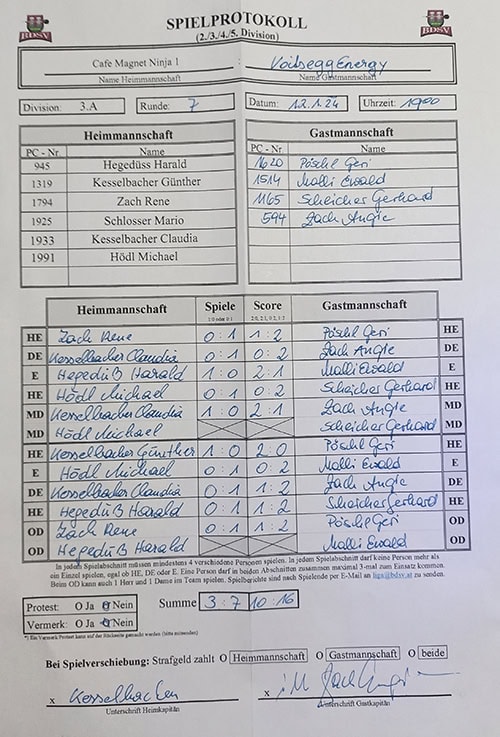 BDSV SPIELPROTOKOLL BDSV
(2./3./4./5. Division)
Cafe Magnet Ninja 1 : Voitsegg Energy
Name Heimmannschaft Name Gastmannschaft
Division: 3.A Runde: 7 Datum: 12.1.24 Uhrzeit: 1900
Heimmannschaft Gastmannschaft
PC - Nr. Name PC - Nr. Name
945 Hegedüss Harald 1620 Pöschl Geri
1319 Kesselbacher Günther 1514 Malli Ewald
1794 Zach Rene 1165 Scheicher Gerhard
1925 Schlosser Mario 594 Zach Angie
1933 Kesselbacher Claudia
1991 Hödl Michael
Heimmannschaft Spiele Score Gastmannschaft
1:0 oder 0:1 2:0, 2:1, 0:2, 1:2
HE Zach Rene 0 : 1 1 : 2 Pöschl Geri HE
DE Kesselbacher Claudia 0 : 1 0 : 2 Zach Angie DE
E Hegedüß Harald 1 : 0 2 : 1 Malli Ewald E
HE Hödl Michael 0 : 1 0 : 2 Scheicher Gerhard HE
MD Kesselbacher Claudia 1 : 0 2 : 1 Zach Angie MD
MD Hödl Michael Scheicher Gerhard MD
HE Kesselbacher Günther 1 : 0 2 : 0 Pöschl Geri HE
E Hödl Michael 0 : 1 0 : 2 Malli Ewald E
DE Kesselbacher Claudia 0 : 1 1 : 2 Zach Angie DE
HE Hegedüß Harald 0 : 1 1 : 2 Scheicher Gerhard HE
OD Zach Rene 0 : 1 1 : 2 Pöschl Geri OD
OD Hegedüß Harald Malli Ewald OD
In jedem Spielabschnitt müssen mindestens 4 verschiedene Personen spielen. In jedem Spielabschnitt darf keine Person mehr als
ein Einzel spielen, egal ob HE, DE oder E. Eine Person darf in beiden Abschnitten zusammen maximal 3-mal zum Einsatz kommen.
Beim OD kann auch 1 Herr und 1 Dame im Team spielen. Spielberichte sind nach Spielende per E-Mail an liga@bdsv.at zu senden.
Protest: O Ja O Nein Summe 3 : 7 10 : 16
Vermerk: O Ja O Nein
*) Ein Vermerk/Protest kann auf der Rückseite gemacht werden (bitte ankreuzen)
Bei Spielverschiebung: Strafgeld zahlt O Heimmannschaft O Gastmannschaft O beide
x Kesselbacher x
Unterschrift Heimkapitän Unterschrift Gastkapitän